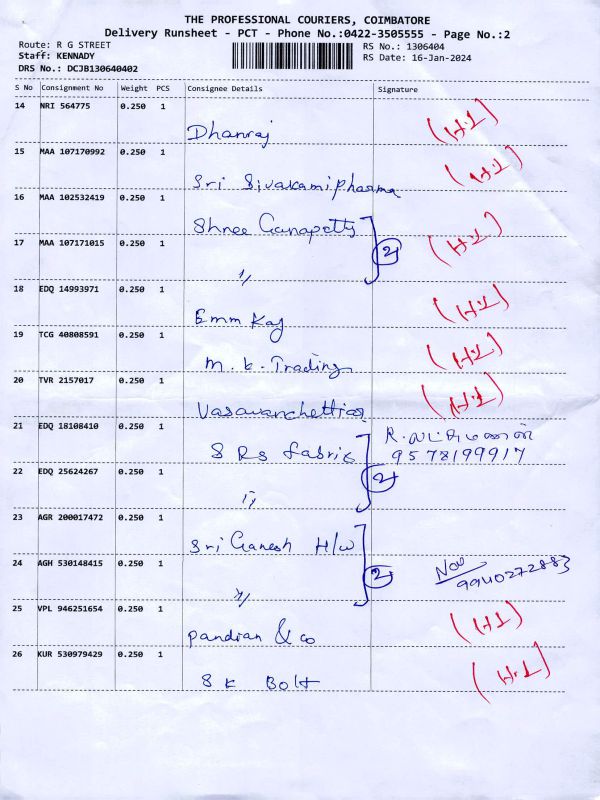 THE PROFESSIONAL COURIERS, COIMBATORE
Delivery Runsheet - PCT - Phone No.:0422-3505555 - Page No.:2
Route: R G STREET
RS No.: 1306404
Staff: KENNADY
RS Date: 16-Jan-2024
DRS No.: DCJB130640402
S No Consignment No Weight PCS Consignee Details Signature
14 NRI 564775 0.250 1
Dhanraj (H.I)
15 MAA 107170992 0.250 1
Sri Sivakami pharma (H.I)
16 MAA 102532419 0.250 1
Shree Ganapetty
17 MAA 107171015 0.250 1 2 (H.I)
"
18 EDQ 14993971 0.250 1
Emm Kay (H.I)
19 TCG 40808591 0.250 1
M. K. Trading (H.I)
20 TVR 2157017 0.250 1
Vasavanchettiar (H.I)
21 EDQ 18108410 0.250 1
S Rs fabric R. லட்சுமணன்
9578199917
22 EDQ 25624267 0.250 1 2
"
23 AGR 200017472 0.250 1
Sri Ganesh H/w
24 AGH 530148415 0.250 1 2
" 9940272883
25 VPL 946251654 0.250 1
Pandian & co (H.I)
26 KUR 530979429 0.250 1
S K Bolt (H.I)